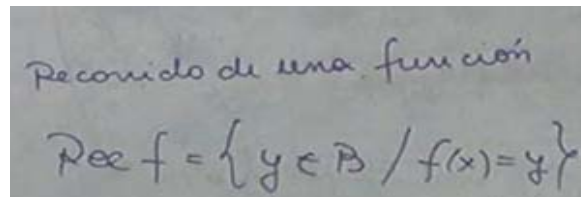 Recorrido de una función
Rec f = { y ∈ B / f(x) = y }